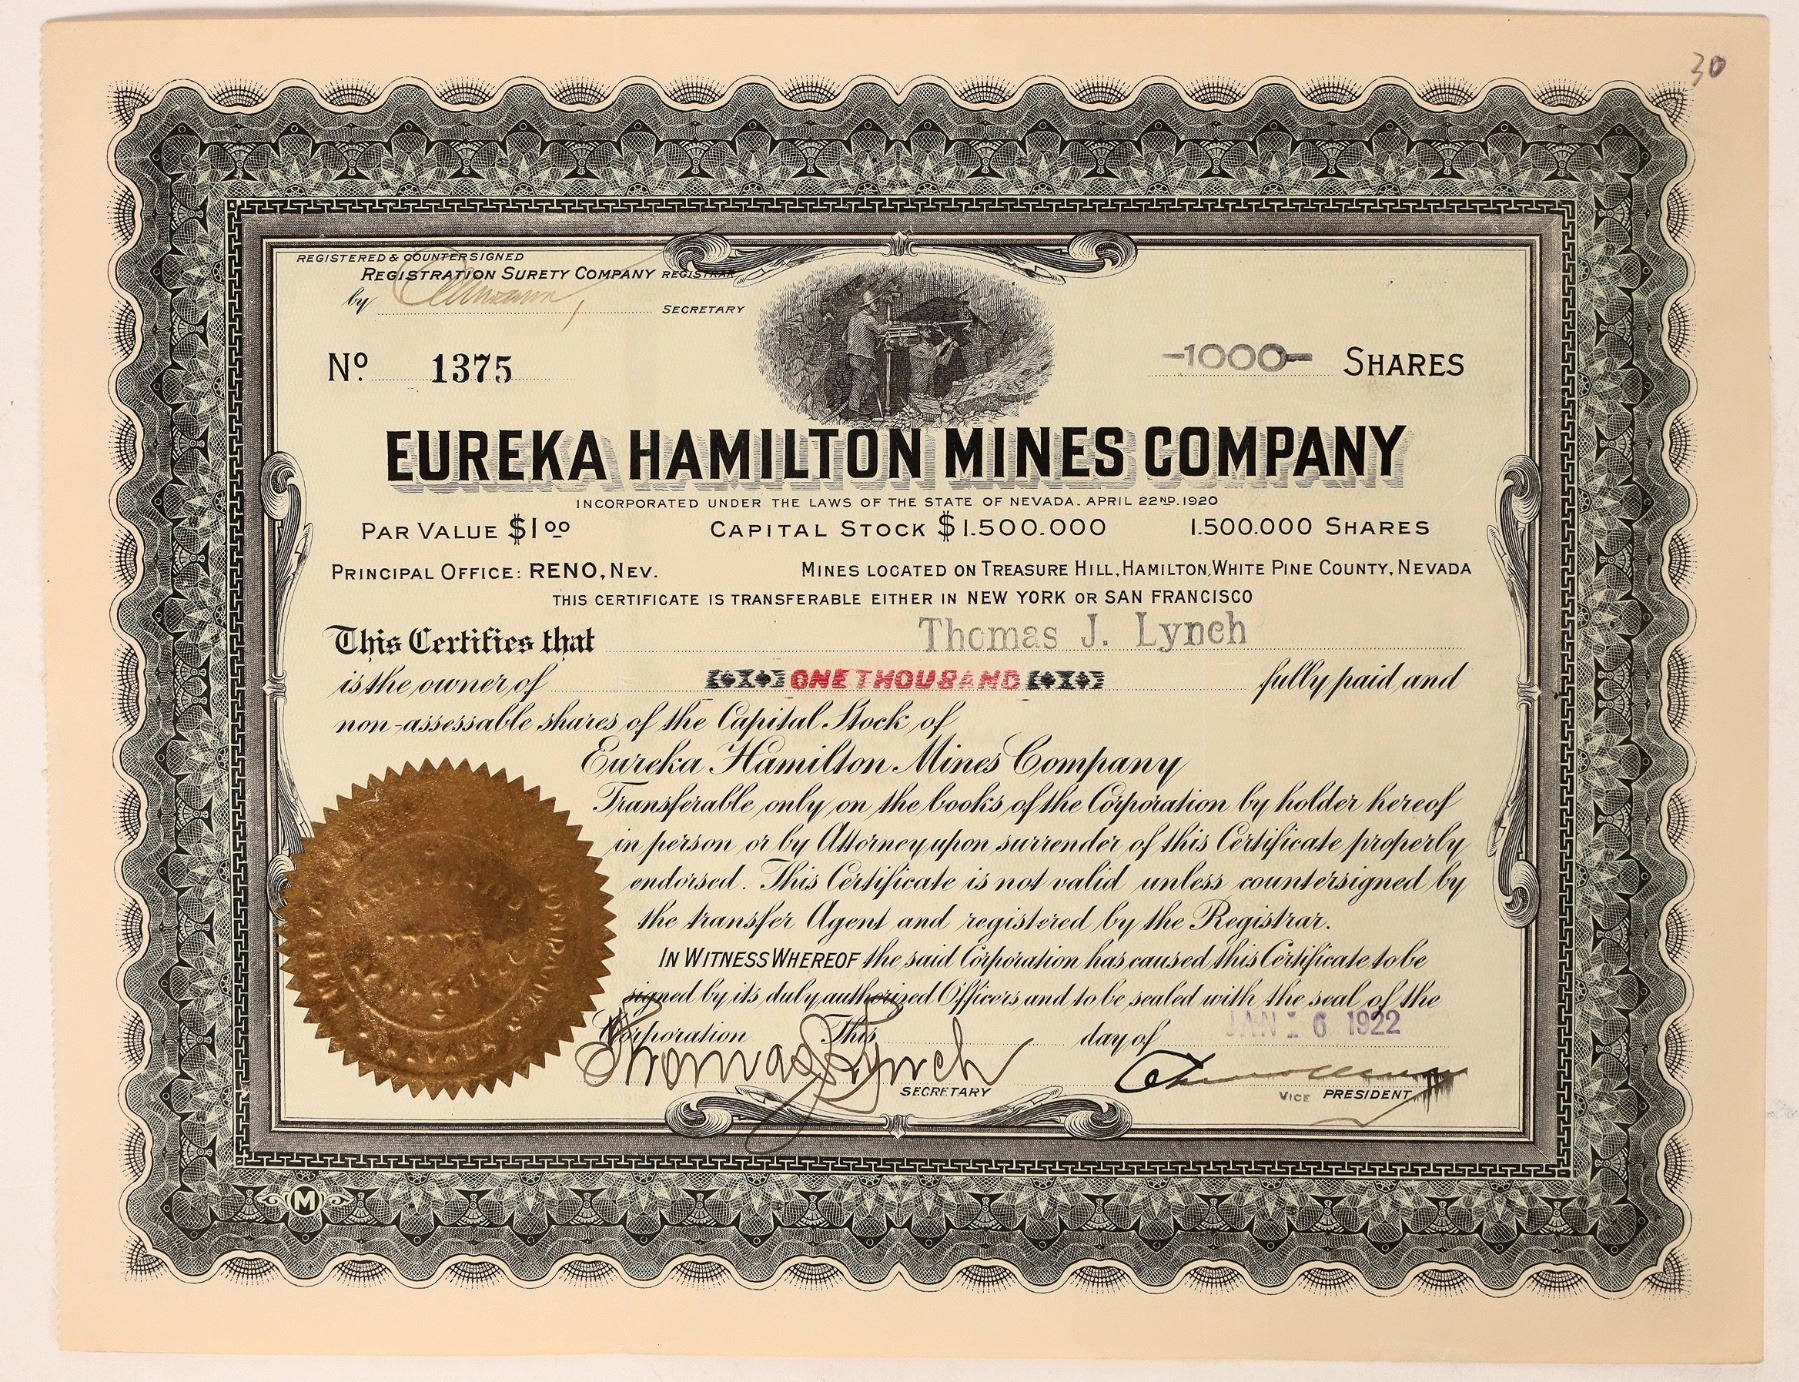 30
REGISTERED & COUNTERSIGNED
REGISTRATION SURETY COMPANY REGISTRAR
by
SECRETARY
No. 1375
-1000- SHARES
EUREKA HAMILTON MINES COMPANY
INCORPORATED UNDER THE LAWS OF THE STATE OF NEVADA. APRIL 22ND. 1920
PAR VALUE $1.00 CAPITAL STOCK $1.500.000 1.500.000 SHARES
PRINCIPAL OFFICE: RENO, NEV. MINES LOCATED ON TREASURE HILL, HAMILTON, WHITE PINE COUNTY, NEVADA
THIS CERTIFICATE IS TRANSFERABLE EITHER IN NEW YORK OR SAN FRANCISCO
This Certifies that Thomas J. Lynch
is the owner of ONE THOUSAND fully paid and
non-assessable shares of the Capital Stock of
Eureka Hamilton Mines Company
Transferable only on the books of the Corporation by holder hereof
in person or by Attorney upon surrender of this Certificate properly
endorsed. This Certificate is not valid unless countersigned by
the transfer Agent and registered by the Registrar.
IN WITNESS WHEREOF the said Corporation has caused this Certificate to be
signed by its duly authorized Officers and to be sealed with the seal of the
Corporation This day of JAN 16 1922
Thomas J. Lynch
SECRETARY
VICE PRESIDENT
NEVADA
M